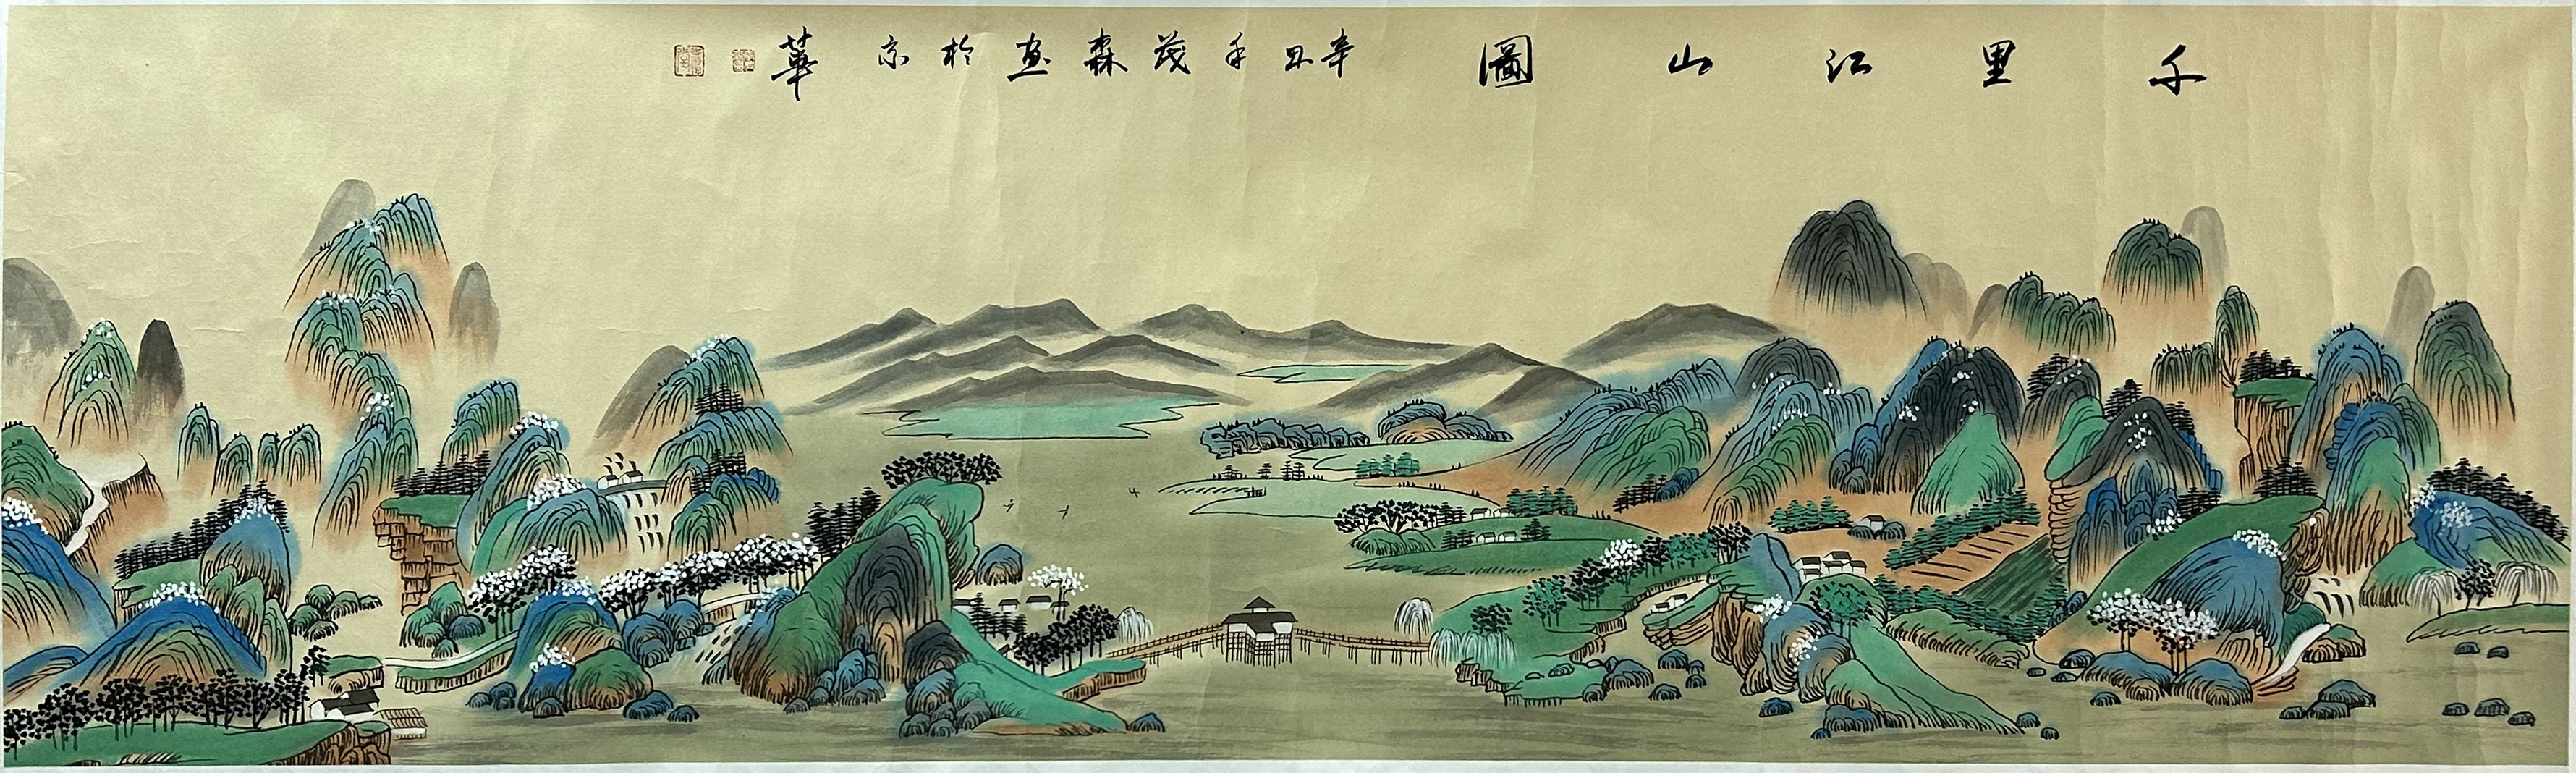 千里江山圖
辛丑年茂森画於京華